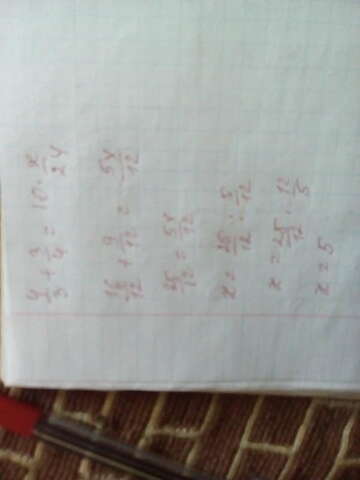 4/3 + 3/4 = 10 · x/24
16/12 + 9/12 = 5x/12
25/12 = 5x/12
x = 25/12 : 5/12
x = 25/12 · 12/5
x = 5